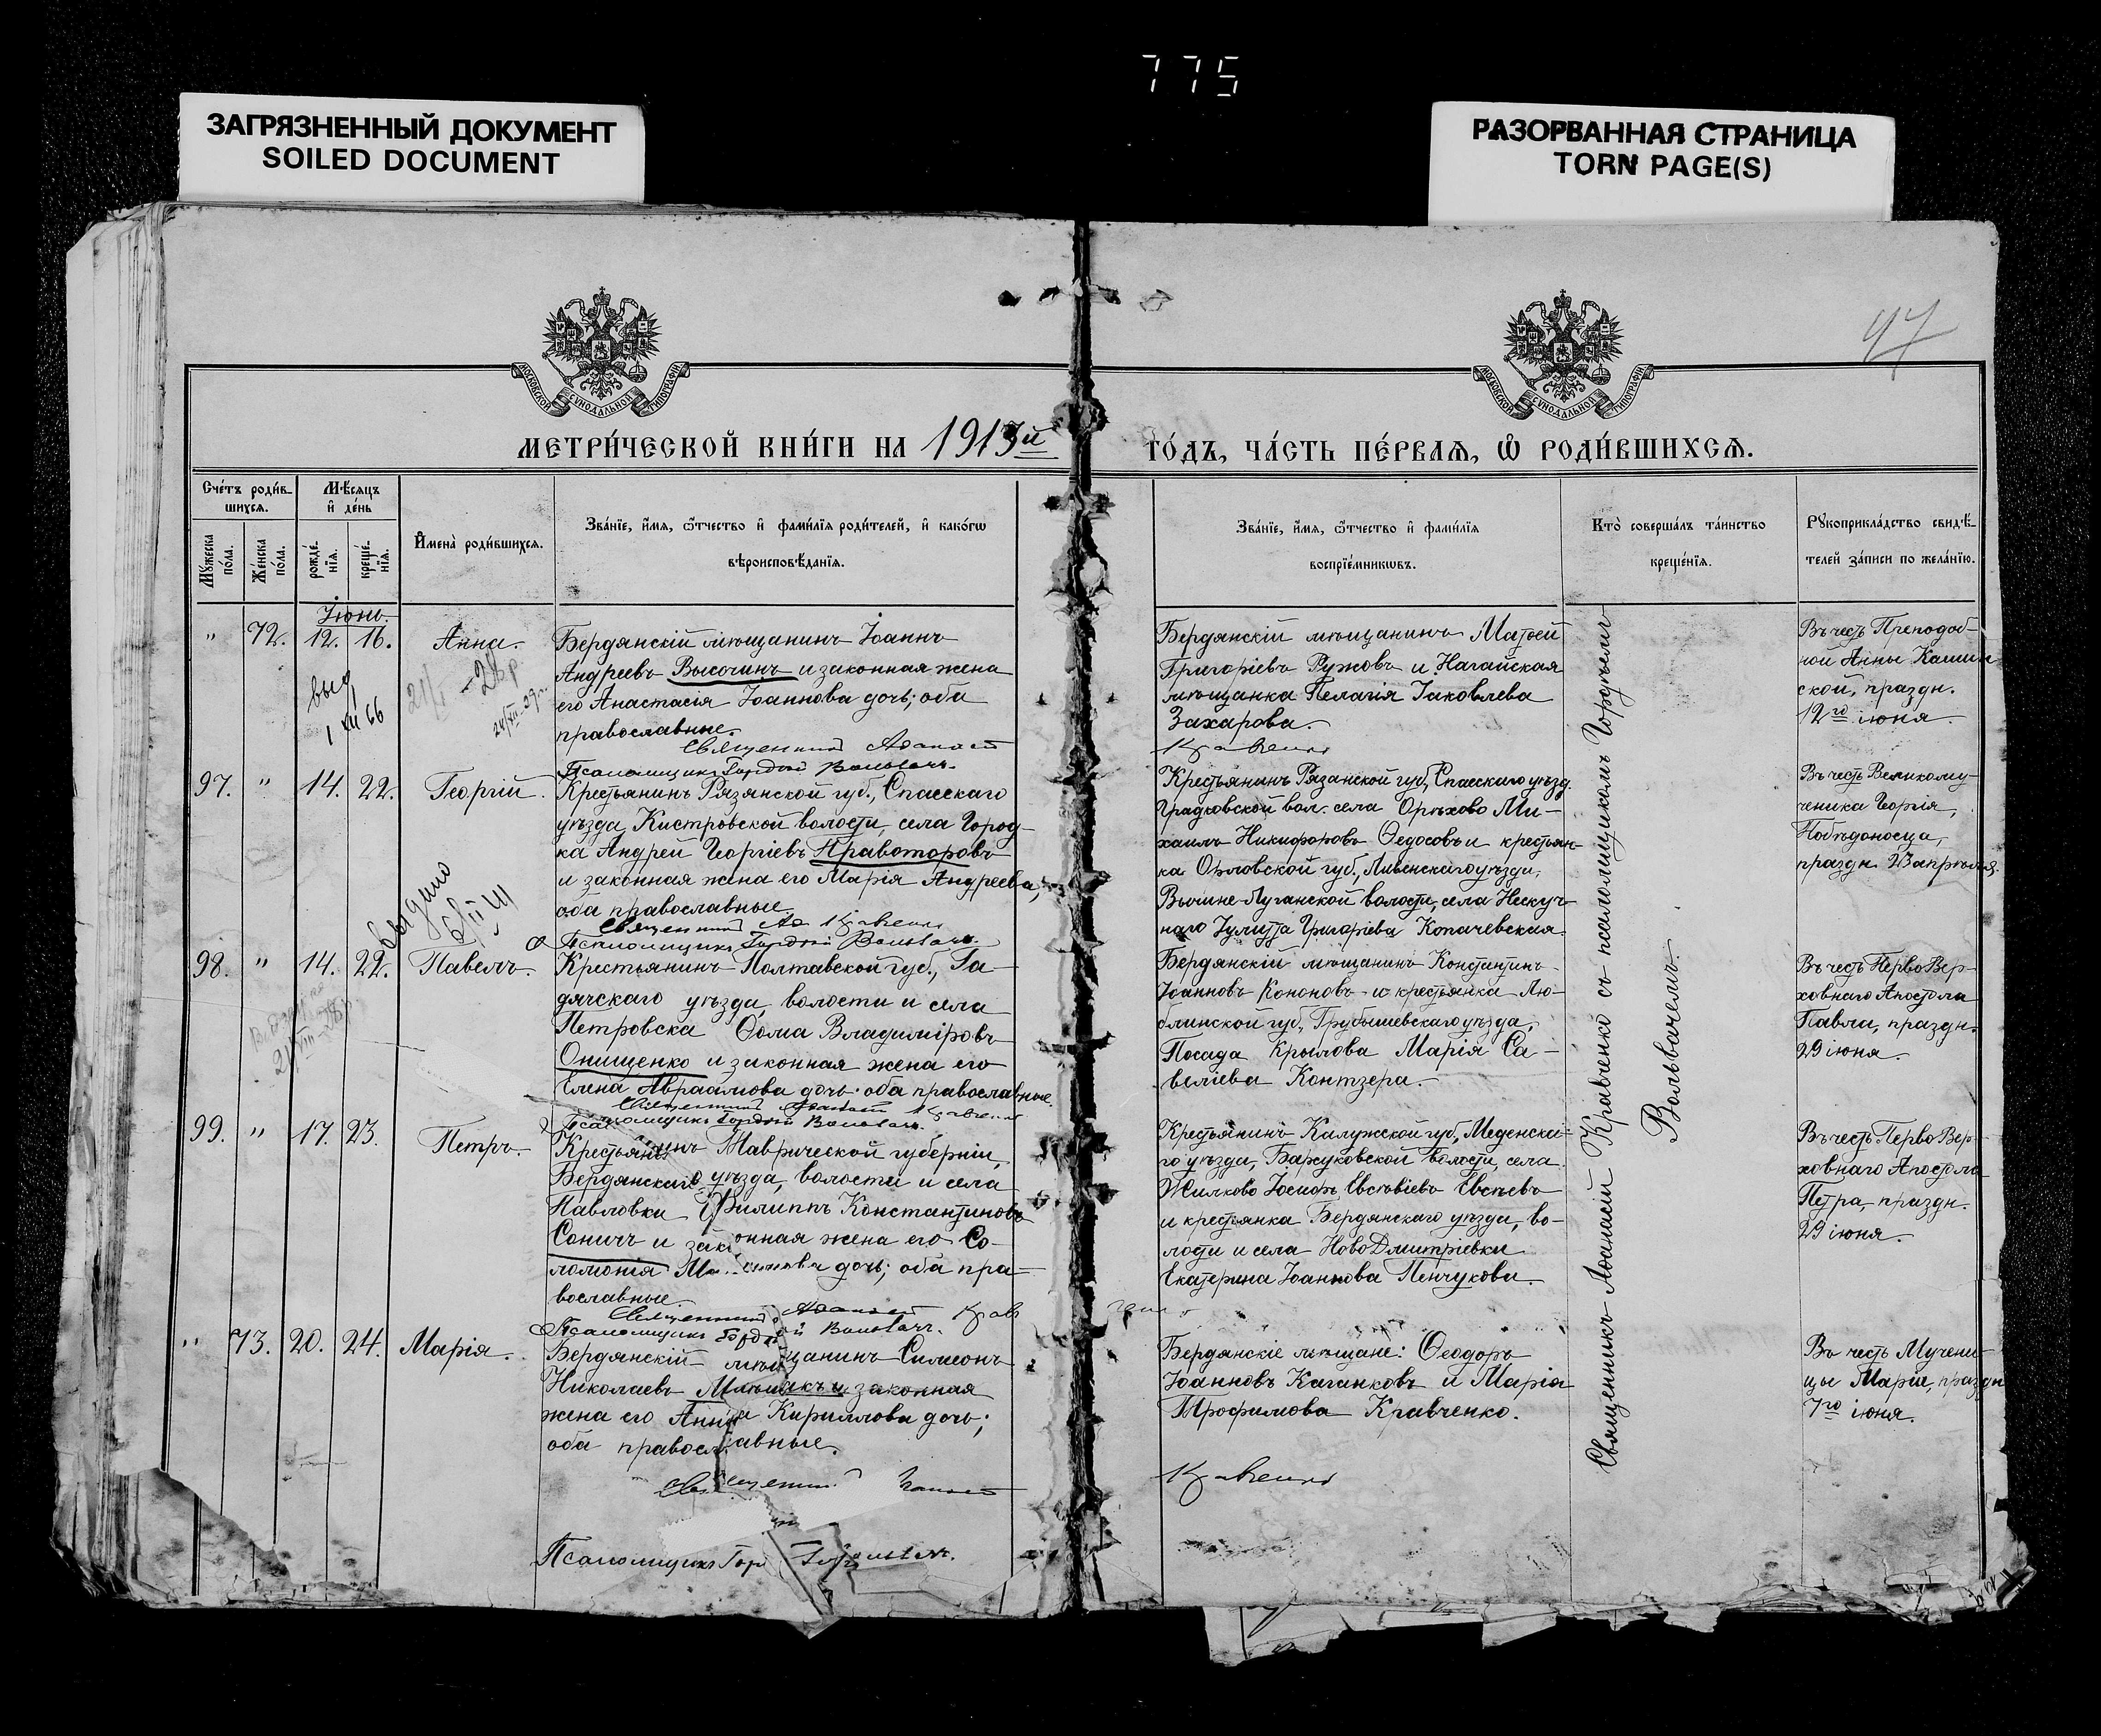 775
ЗАГРЯЗНЕННЫЙ ДОКУМЕНТ
SOILED DOCUMENT
РАЗОРВАННАЯ СТРАНИЦА
TORN PAGE(S)
47
МОСКОВСКОЙ СѴНОДАЛЬНОЙ ТИПОГРАФІИ
МОСКОВСКОЙ СѴНОДАЛЬНОЙ ТИПОГРАФІИ
МЕТРИ́ЧЕСКОЙ КНИ́ГИ НА 1913й
ГО́ДЪ, ЧА́СТЬ ПЕ́РВАѦ, Ѡ҆ РОДИ́ВШИХСѦ.
Сче́тъ роди́в-
шихсѧ.
Мѣ́сѧцъ
и҆ де́нь
Мꙋ́жеска по́ла.
Же́нска по́ла.
рожде́-
нїѧ.
креще́-
нїѧ.
И҆мена̀ роди́вшихсѧ.
Зва́нїе, и҆́мѧ, ѻ҆́тчество и҆ фами́лїѧ роди́телей, и҆ како́гѡ
вѣроисповѣ́данїѧ.
Зва́нїе, и҆́мѧ, ѻ҆́тчество и҆ фами́лїѧ
воспрїе́мникѡвъ.
Кто̀ соверша́лъ та́инство
креще́нїѧ.
Рꙋкоприкла́дство свидѣ́-
телей за́писи по жела́нїю.
Іюнь.
" 72. 12. 16. Анна.
Бердянскій мѣщанинъ Іоаннъ
Андреевъ Высочинъ и законная жена
его Анастасія Іоаннова дочь; оба
православные.
Священникъ Аѳанасій
Псаломщикъ Гордій Вольвачъ.
Бердянскій мѣщанинъ Матѳей
Григоріевъ Ружовъ и Нагайская
мѣщанка Пелагія Іаковлева
Захарова.
Кравченко
Въ честь Преподоб-
ной Анны Кашин
ской, праздн.
12го іюня.
выд
1 XII 66
97. " 14. 22. Георгій.
Крестьянинъ Рязанской губ., Спасскаго
уѣзда, Кистровской волости, села Город-
ка Андрей Георгіевъ Правоторовъ
и законная жена его Марія Андреева,
оба православные.
Священникъ Аѳ Кравченко
Псаломщикъ Гордій Вольвачъ.
Крестьянинъ Рязанской губ., Спасскаго уѣзд.
Градковской вол. села Орѣхово Ми-
хаилъ Никифоровъ Ѳедосовъ и крестьян-
ка Орловской губ., Ливенскаго уѣзда,
волости, села Нескуч-
наго Іулитта Григоріева Копачевская.
Въ честь Великому-
ченика Георгія,
Побѣдоносца,
праздн. 23 апрѣля.
выдано
98. " 14. 22. Павелъ.
Крестьянинъ Полтавской губ., Га-
дячскаго уѣзда, волости и села
Петровска Ѳома Владиміровъ
Онищенко и законная жена его
Елена Авраамова дочь оба православные.
Священникъ Аѳанасій Кравченко
Псаломщикъ Гордій Вольвачъ.
Бердянскій мѣщанинъ Константинъ
Іоанновъ Кононовъ и крестьянка Лю-
блинской губ., Грубешевскаго уѣзда,
Посада Крылова Марія Са-
веліева Контзера.
Въ честь ПервоВер-
ховнаго Апостола
Павла, праздн.
29 іюня.
99. " 17. 23. Петръ.
Крестьянинъ Таврической губерніи,
Бердянскаго уѣзда, волости и села
Павловки Филиппъ Константиновъ
Соничъ и законная жена его Со-
ломонія дочь; оба пра-
вославные.
Священникъ Аѳанасій Крав
ченко
Псаломщикъ Гордій Вольвачъ.
Крестьянинъ Калужской губ., Меденска-
го уѣзда, Баржуковской волости, села
Жилково Іосифъ Евсѣвіевъ Евсѣевъ
и крестьянка Бердянскаго уѣзда, во-
лости и села НовоДмитріевки
Екатерина Іоаннова Пенчукова.
Въ честь ПервоВер-
ховнаго Апостола
Петра, праздн.
29 іюня.
" 73. 20. 24. Марія.
Бердянскій мѣщанинъ Симеонъ
Николаевъ и законная
жена его Анна Кириллова дочь;
оба православные.
Священникъ
Псаломщикъ Гор
Бердянскіе мѣщане: Ѳеодоръ
Іоанновъ Каганковъ и Марія
Трофимова Кравченко.
Кравченко
Въ честь Мучени-
цы Маріи, праздн
7го іюня.
Священникъ Аѳанасій Кравченко съ псаломщикомъ Гордіемъ
Вольвачемъ.